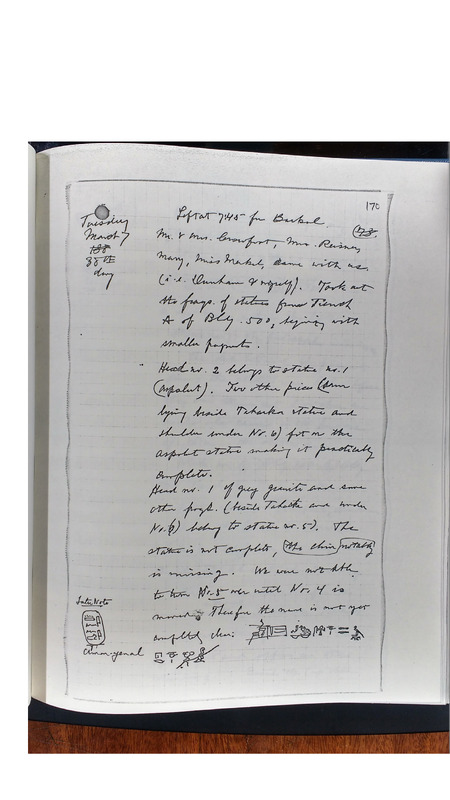 170
Tuesday
March 7
88th
day
Left at 7:45 for Barkal.
Mr. & Mrs. Crowfoot, Mrs. Reisner,
Mary, Miss Maskel, came with us
(i.e. Dunham & myself). Took out
the frags. of statues from Trench
A of Bldg. 500, beginning with
smaller fragments.
Head no. 2 belongs to statue no. 1
(Aspalut). Two other pieces (arm
lying beside Taharka statue and
shoulder under No. 6) fit on the
Aspalt statue making it practically
complete.
Head no. 1 of grey granite and some
other frags. (beside Taharka and under
No. 6) belong to statue no. 5. The
statue is not complete, the chin notably
is missing. We were not able
to turn No. 5 over until No. 4 is
moved. Therefore the name is not yet
completely clear.
Later Note